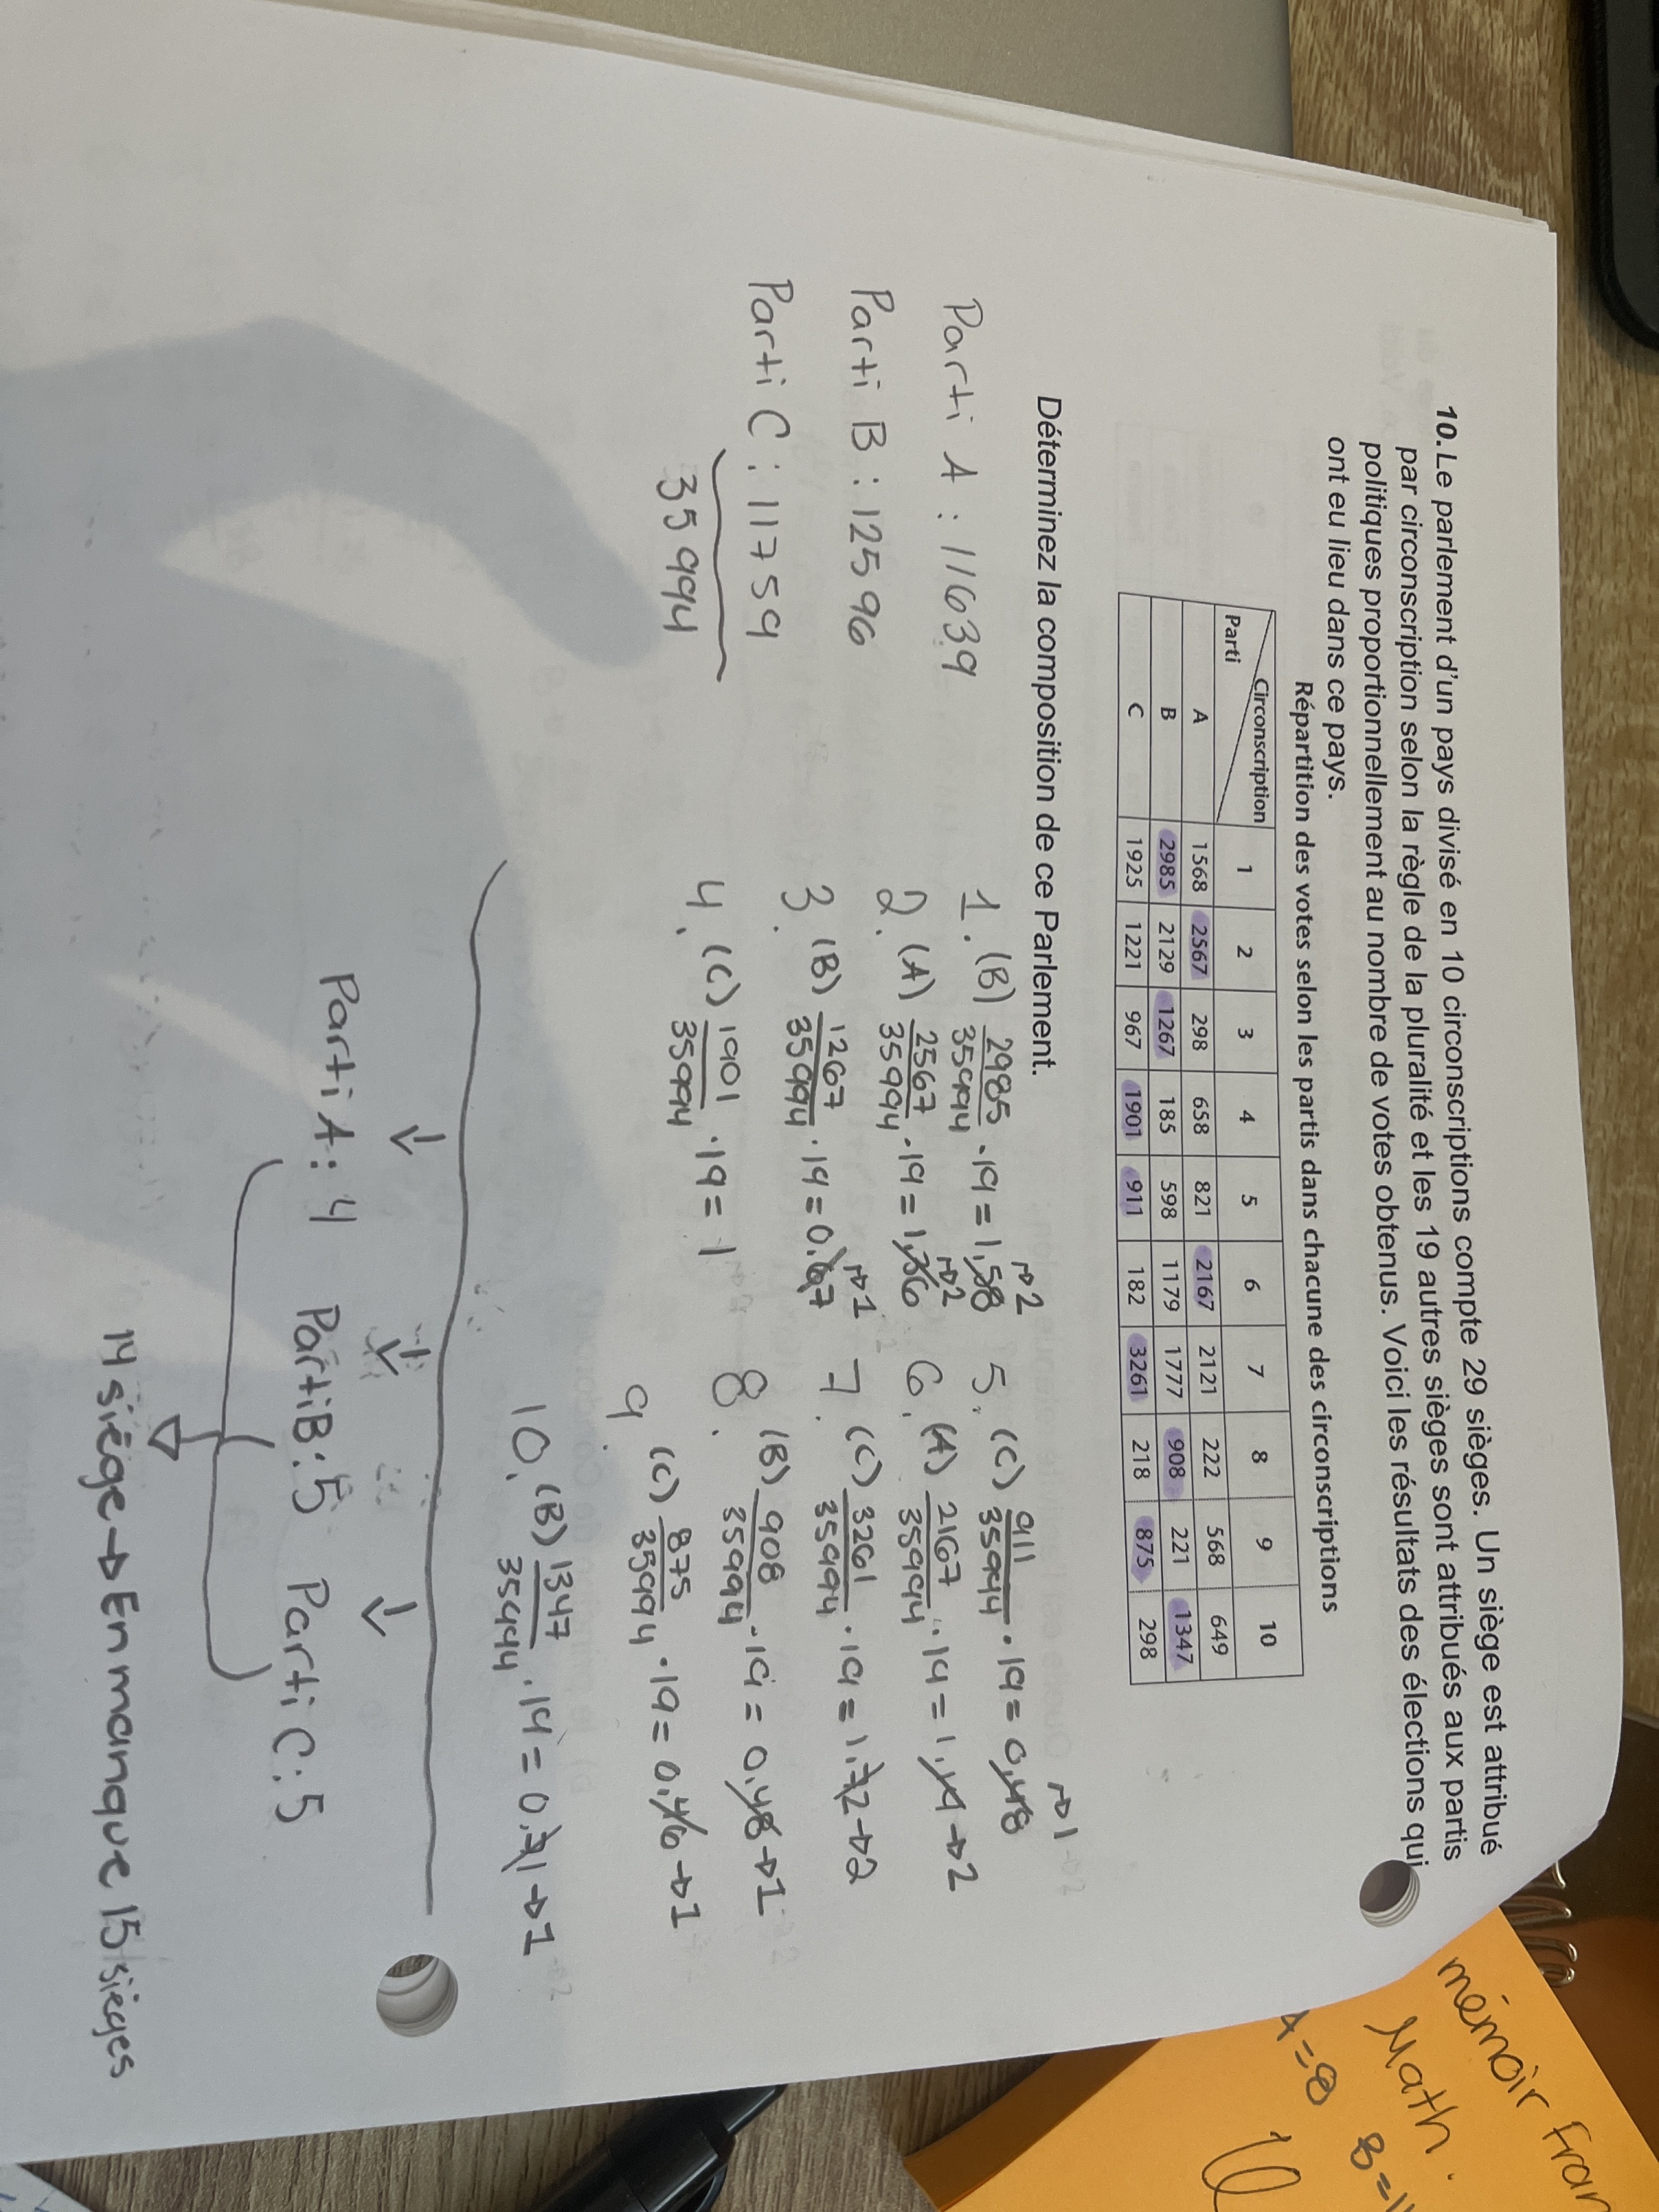 10. Le parlement d'un pays divisé en 10 circonscriptions compte 29 sièges. Un siège est attribué
par circonscription selon la règle de la pluralité et les 19 autres sièges sont attribués aux partis
politiques proportionnellement au nombre de votes obtenus. Voici les résultats des élections qui
ont eu lieu dans ce pays.
Répartition des votes selon les partis dans chacune des circonscriptions
Circonscription 1 2 3 4 5 6 7 8 9 10
Parti
A 1568 2567 298 658 821 2167 2121 222 568 649
B 2985 2129 1267 185 598 1179 1777 908 221 1347
C 1925 1221 967 1901 911 182 3261 218 875 298
Déterminez la composition de ce Parlement.
Parti A : 11639
Parti B : 12596
Parti C : 11759
35994
1. (B) 2985/35994 · 19 = 1,58 → 2
2. (A) 2567/35994 · 19 = 1,36 → 2
3. (B) 1267/35994 · 19 = 0.67 → 1
4. (C) 1901/35994 · 19 = 1
5. (C) 911/35994 · 19 = 0,48 → 1
6. (A) 2167/35994 · 19 = 1,14 → 2
7. (C) 3261/35994 · 19 = 1.72 → 2
8. (B) 908/35994 · 19 = 0,48 → 1
9. (C) 875/35994 · 19 = 0,46 → 1
10. (B) 1347/35994 · 19 = 0,71 → 1
Parti A : 4 Parti B : 5 Parti C : 5
14 siège → En manque 15 sièges
mémoir Fran
Math
A = 8